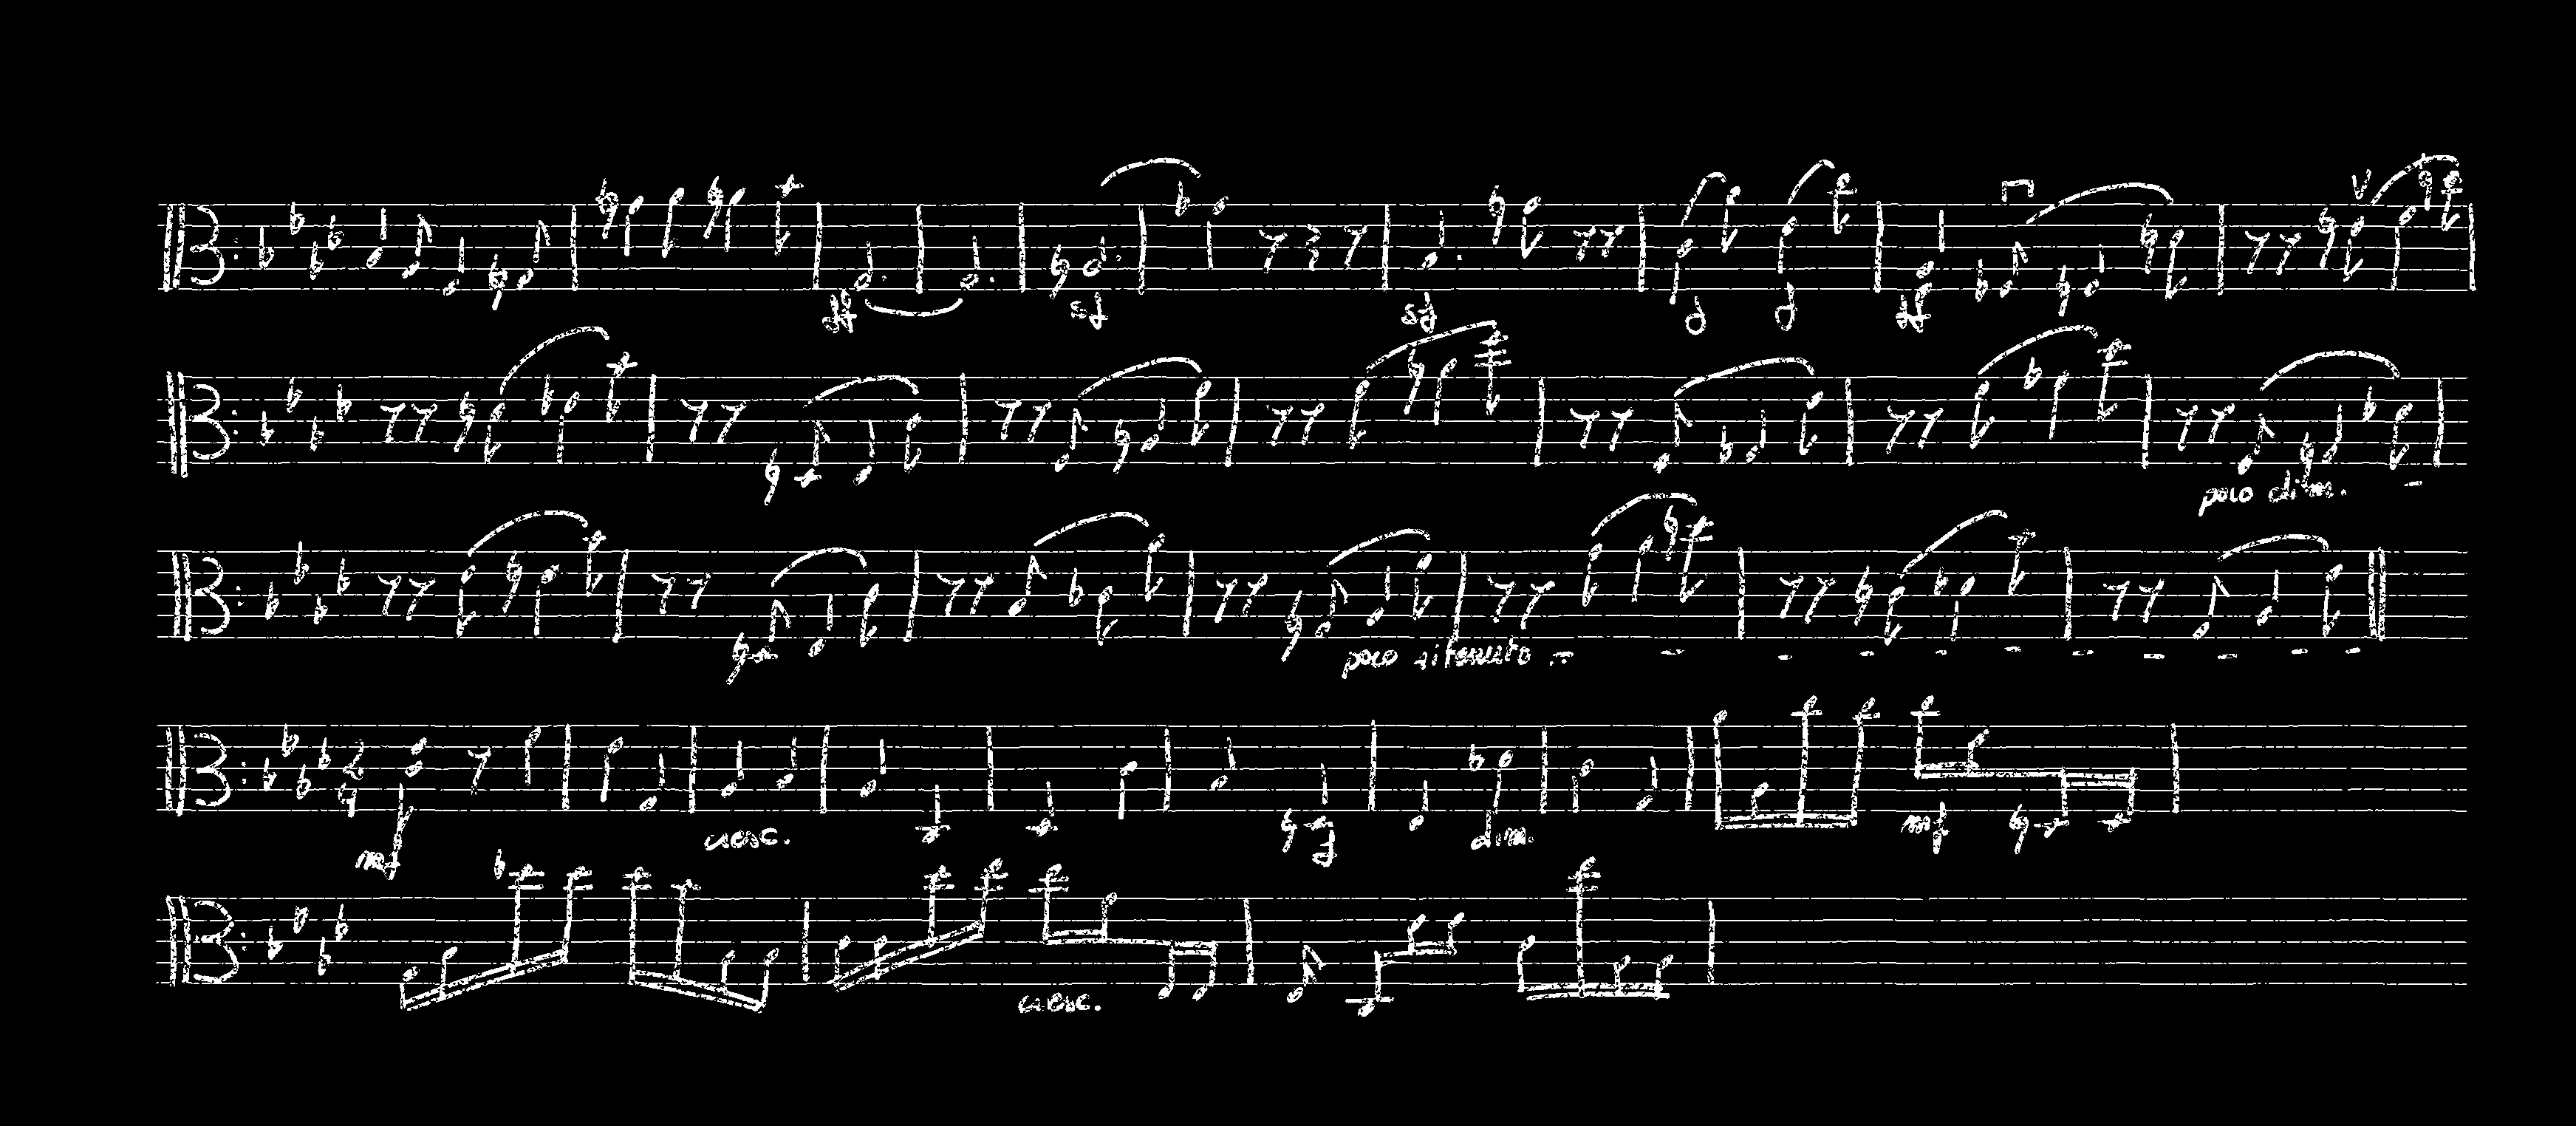 ff sf sf f f ff
poco dim. -
poco ritenuto - - - - - - - - - -
2
4
mf cresc. f dim. mf
cresc.